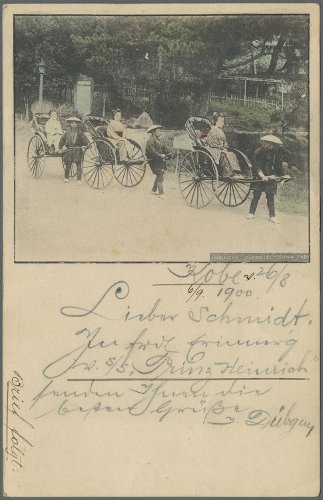 Kobe 26/8
v. 6/9. 1900.
Lieber Schmidt.
In frdl. Erinnerg
v. S/S. "Prinz Heinrich"
senden Ihnen die
besten Grüße
Brief folgt.